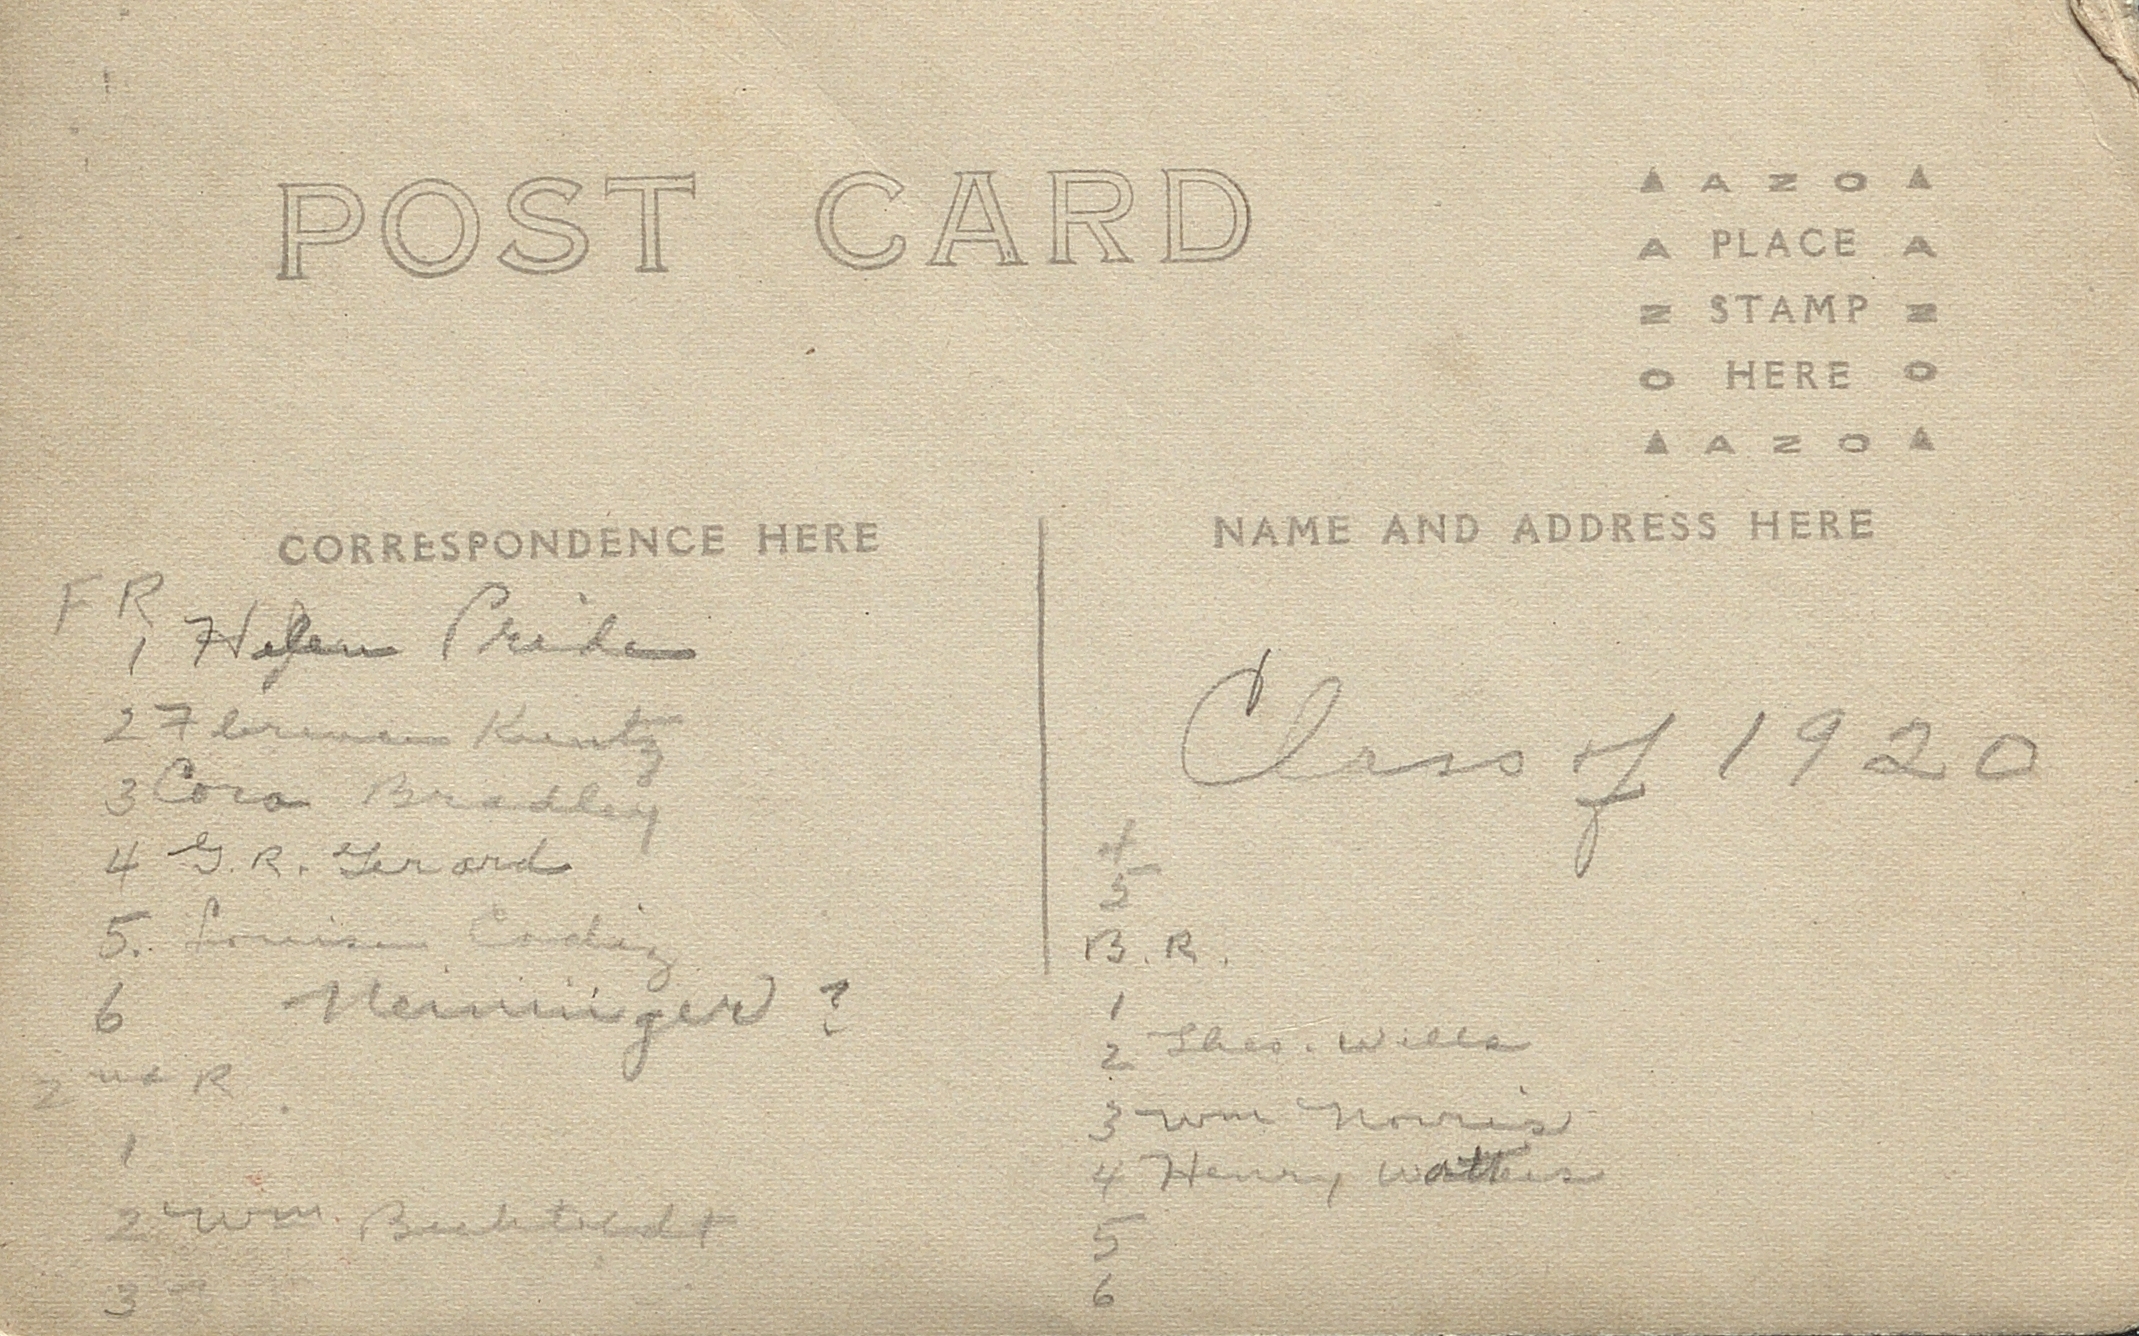 POST CARD
▲ A Z O ▲
A PLACE A
Z STAMP Z
O HERE O
▲ A Z O ▲
CORRESPONDENCE HERE
F R
1 Helen
2 Florence Kuntz
3 Cora Bradley
4 G. R. Gerard
5. Louise
6 Neininger ?
2nd R
1
2 Wm.
3
NAME AND ADDRESS HERE
Class of 1920
4
5
B. R.
1
2 Thos. Wills
3 Wm Norris
4 Henry
5
6